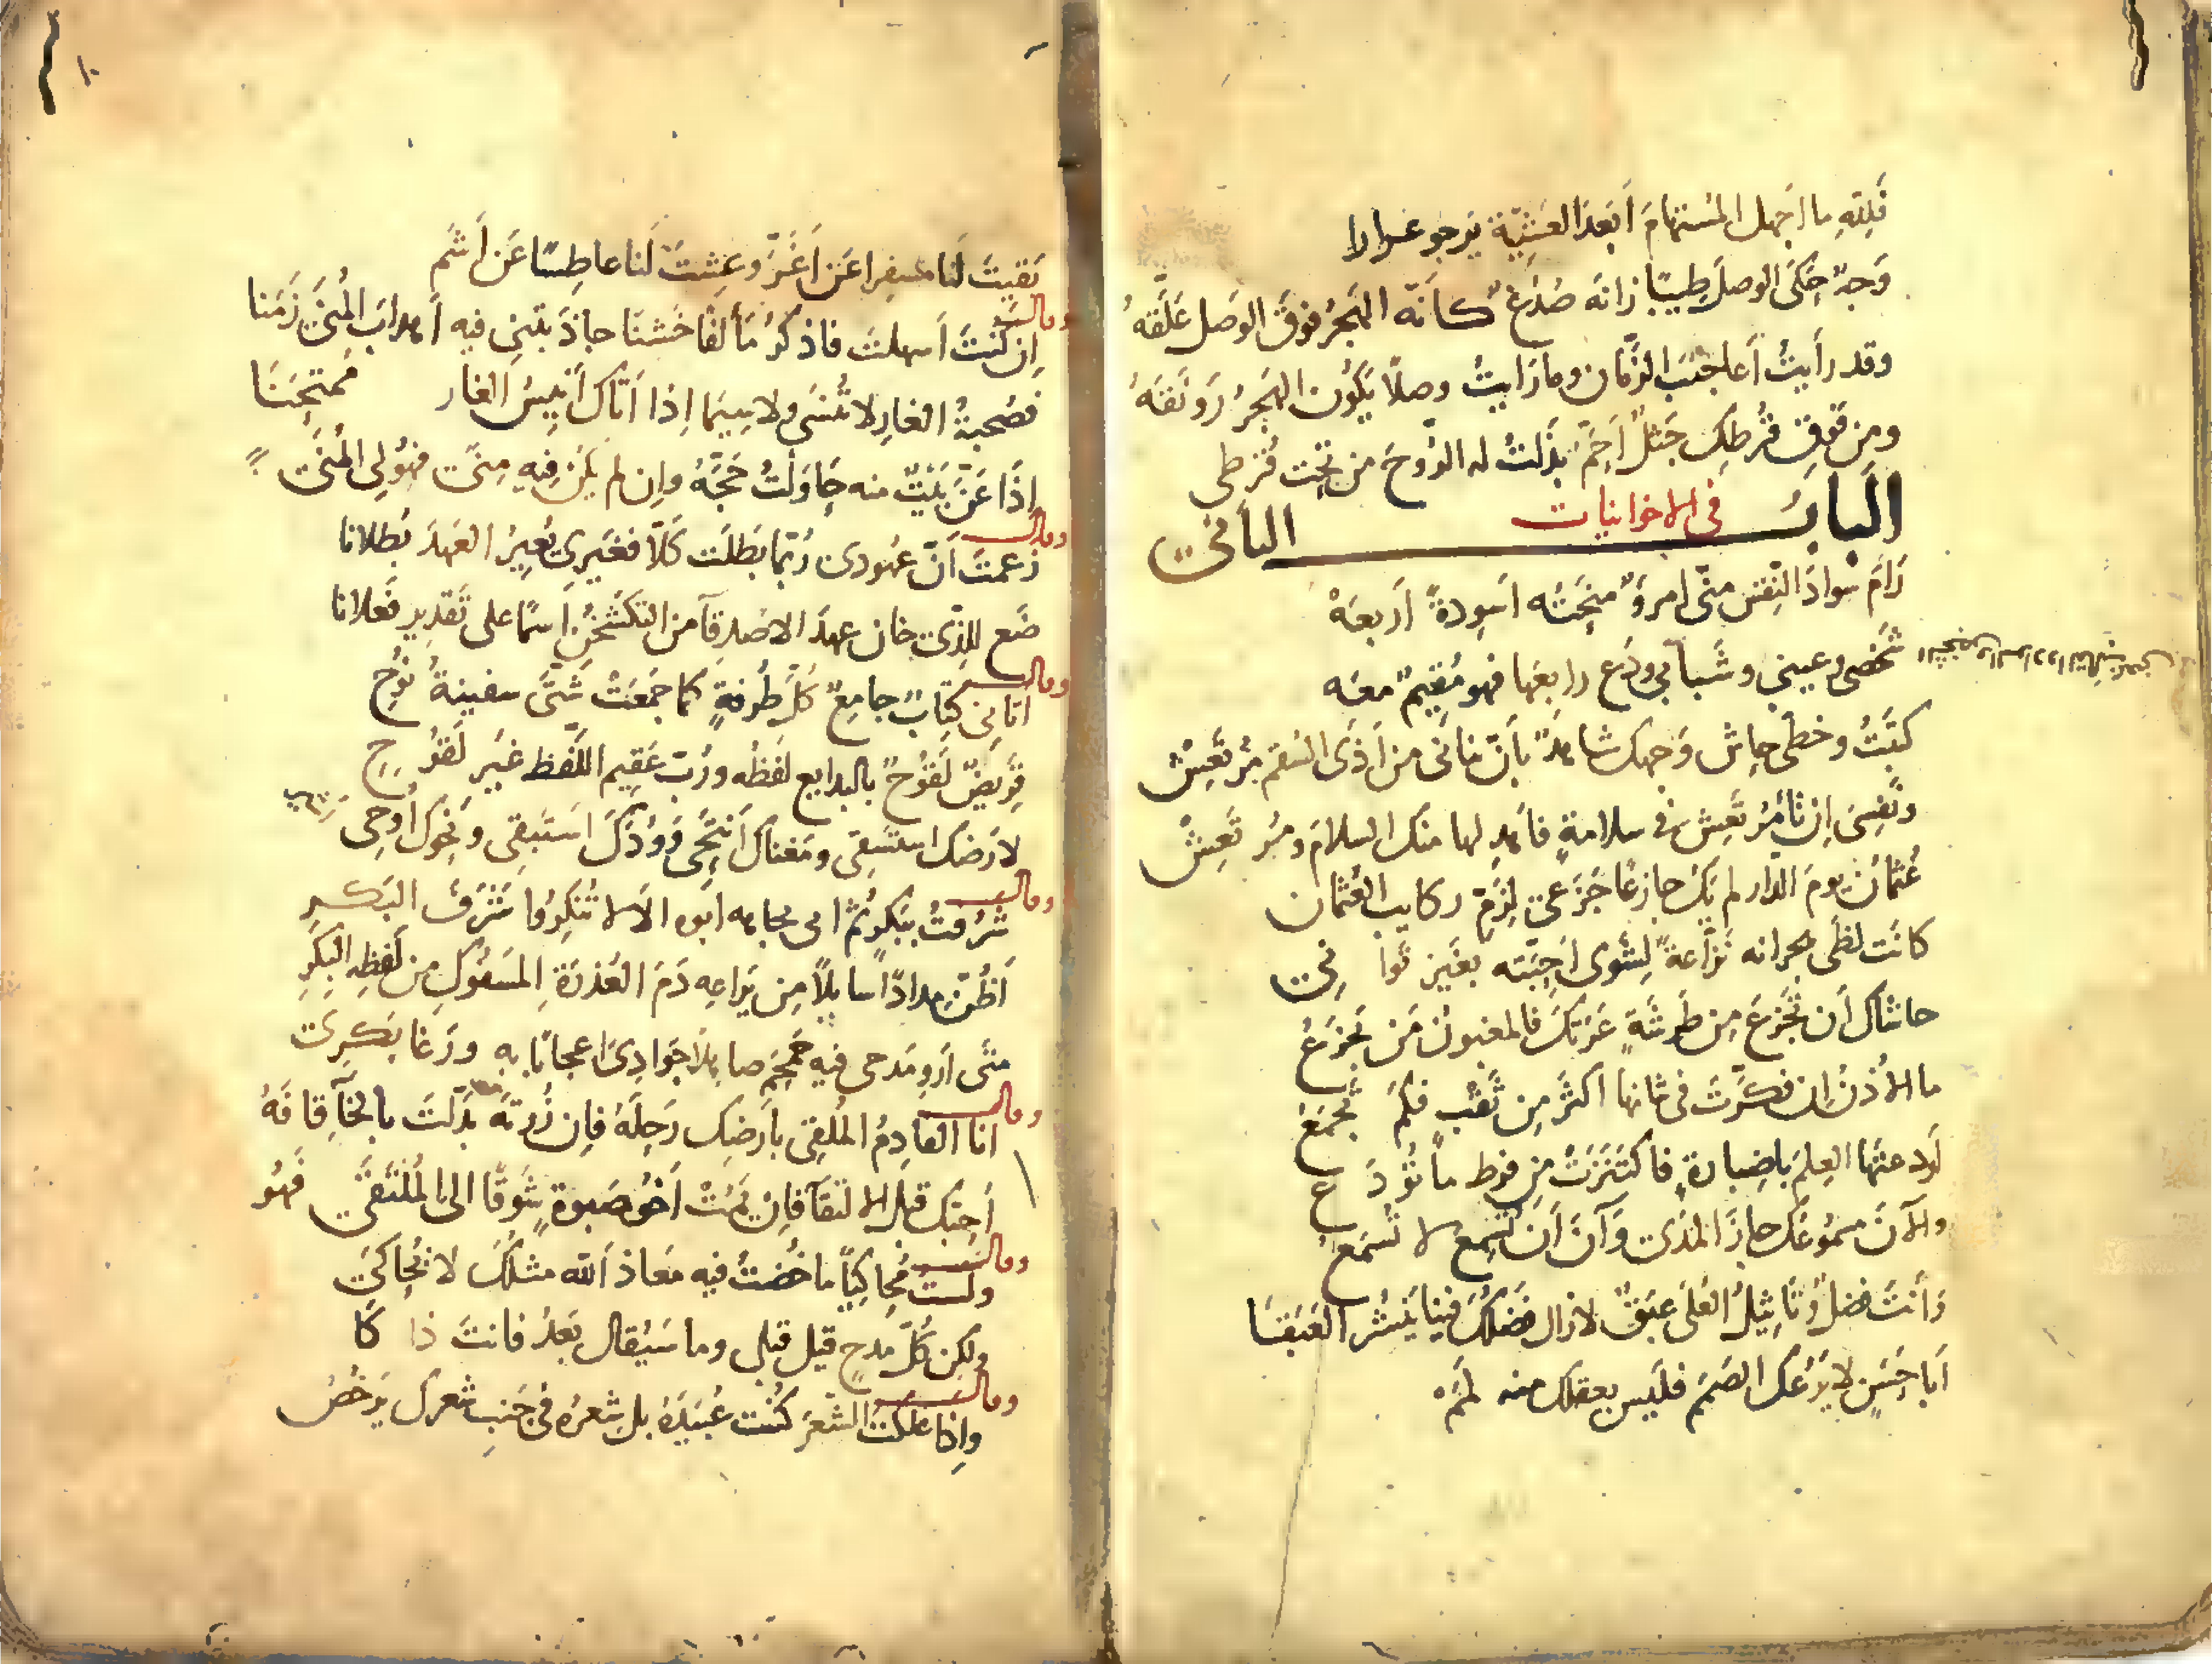 فَلِلّهِ ما اجهل المُستهامَ أَبَعدَ العَشِيّة يَرجو عَرارا
وَجهٌ حَكَى الوصلَ طِيبًا زانَه صُدغٌ كأنّه الهَجرُ فوقَ الوَصل عَلَّقَهُ
وقد رأيتُ أعاجيبَ الزّمان وما رأيتُ وصلاً يكُون الهَجرُ رَونَقَهُ
ومن فَوقِ قُرطِك جَثلٌ أَحَمّ بذَلتُ له الرُّوحَ من تحتِ قُرطي
البابُ في الاخوانيات الثاني
رَامَ سَوادَ النِّقسِ منّى امرؤٌ منَحتُه اَسوِدةً أربعَهْ
شَخصى وعيني وشَبابي ودَع رابعَها فهو مُقيمٌ معَه
كتَبتُ وخطى حاش وَجهك شاهدٌ بأنّ بَنانى من أذَى السُقم مُرتَعِشْ
ونَفِسىَ إن تأمُر تَعِش في سلامةٍ فاهدِ لها منك السلامَ ومُر تَعِشْ
عُثمانُ يومَ الدار لم يَكُ جازعًا جَزَعى لِزَمّ ركايب العُثمان
كانَت لظَى هجرانه نَزّاعةً لِشَوى اَحِبّته بغَير تَوانى
حاشاك أن تَجزَعَ مِن طَرشَةٍ عَرَتكَ فالمغبونُ مَن يَجزَعُ
ما الأُذنُ إن فكَّرتَ في شانها اكثَرَ مِن ثَقبٍ فلَم تَجمَعُ
أودعتَها العِلمَ باضبارةٍ فاكتَنَزَتْ مِن فرط ما تُودَع
والآنَ مسمُوعُك حازَ المَدَى وَآنَ أن تُسمِع لا تَسمَع
وَأنتَ فضلٌ وتأثيلُ العُلى عَبَقٌ لازال فضلُكَ فينا يَنشُر العَبَقَا
أبا حَسَنٍ لا يَرُعك الصَمَم فلَيس بعقلك منه لَمَمْ
بَقيتَ لَنا مُسفِرا عَن اَغَرّ وعِشتَ لَنا عاطِسًا عَن اَشَم
وقال
إن كنتَ اَسهلتَ فاذكر مَألفًا خَشنًا جاذَبتَنى فيه أهدابَ المُنَى زَمَنا
فصُحبةُ الغارِ لا تُنسَى ولا سِيّما إذا اَتاك اَنيسُ الغار مُمتَحَنَا
إذا عَنّ بَيْتٌ منه حاوَلتُ حَجّهُ وإن لم يَكُن فيه مِنًى فهُو لِى المُنَى
وقال
زَعمتَ أنّ عُهودى رُبّما بَطَلَت كَلّا فغَيرِى يُعِيرُ العَهدَ بُطلانا
ضَع للذى خان عهدَ الأصدقآء من التكشخُنِ اَسمًا على تَقدير فَعلانا
وقال
اَتانى كتابٌ جامعٌ كلَّ طُرفةٍ كما جمعَتْ شَتَّى سفينةُ نُوحِ
قَريضٌ لَقُوحٌ بالبدايع لفظُه ورُبّ عَقيمِ اللّفظ غَير لَقُوحِ
لارَضك استسقى ومَغناك أَنتحى وَوُدّكَ استَبقِى ونَحوك اُوحى
وقال
شَرُفتُ ببَكرٍ ثمّ امى بجاهه ابوه ألا لا تُنكروا شَرَفَ البَكر
اَظُنّ مِدادًا سايلاً مِن يَراعِه دَمَ العُذرَةِ المَسفُوكِ مِن لَفظِه البِكرِ
متَى اَروِ مَدحى فيه حَمحَمَ صاهلاً جَوادِىَ إعجابًا به ورَغا بَكرى
وقال
انا القادِمُ المُلقِى بأرضِك رَحلَهُ فإن زُرتَه بَدّلتَ بالخآء قافَهُ
أحبّك قبلَ الالتقآ فإن يَمُتْ اَخُو صَبوةٍ شَوقًا الى المُلتَقَى فهُو
وقال
ولستُ مُحاكيًا ما خُضتُ فيه مَعاذ اَللّه مثلُكَ لا يُحاكَى
ولكن كلّ مدحٍ قيل قبلى وما سَيُقال بَعدُ فانتَ ذاكا
وقال
وإذا ملكتُ الشّعرَ كُنت عُبَيدَهُ بل شِعرُه في جَنبِ شعرك يَرخُصُ